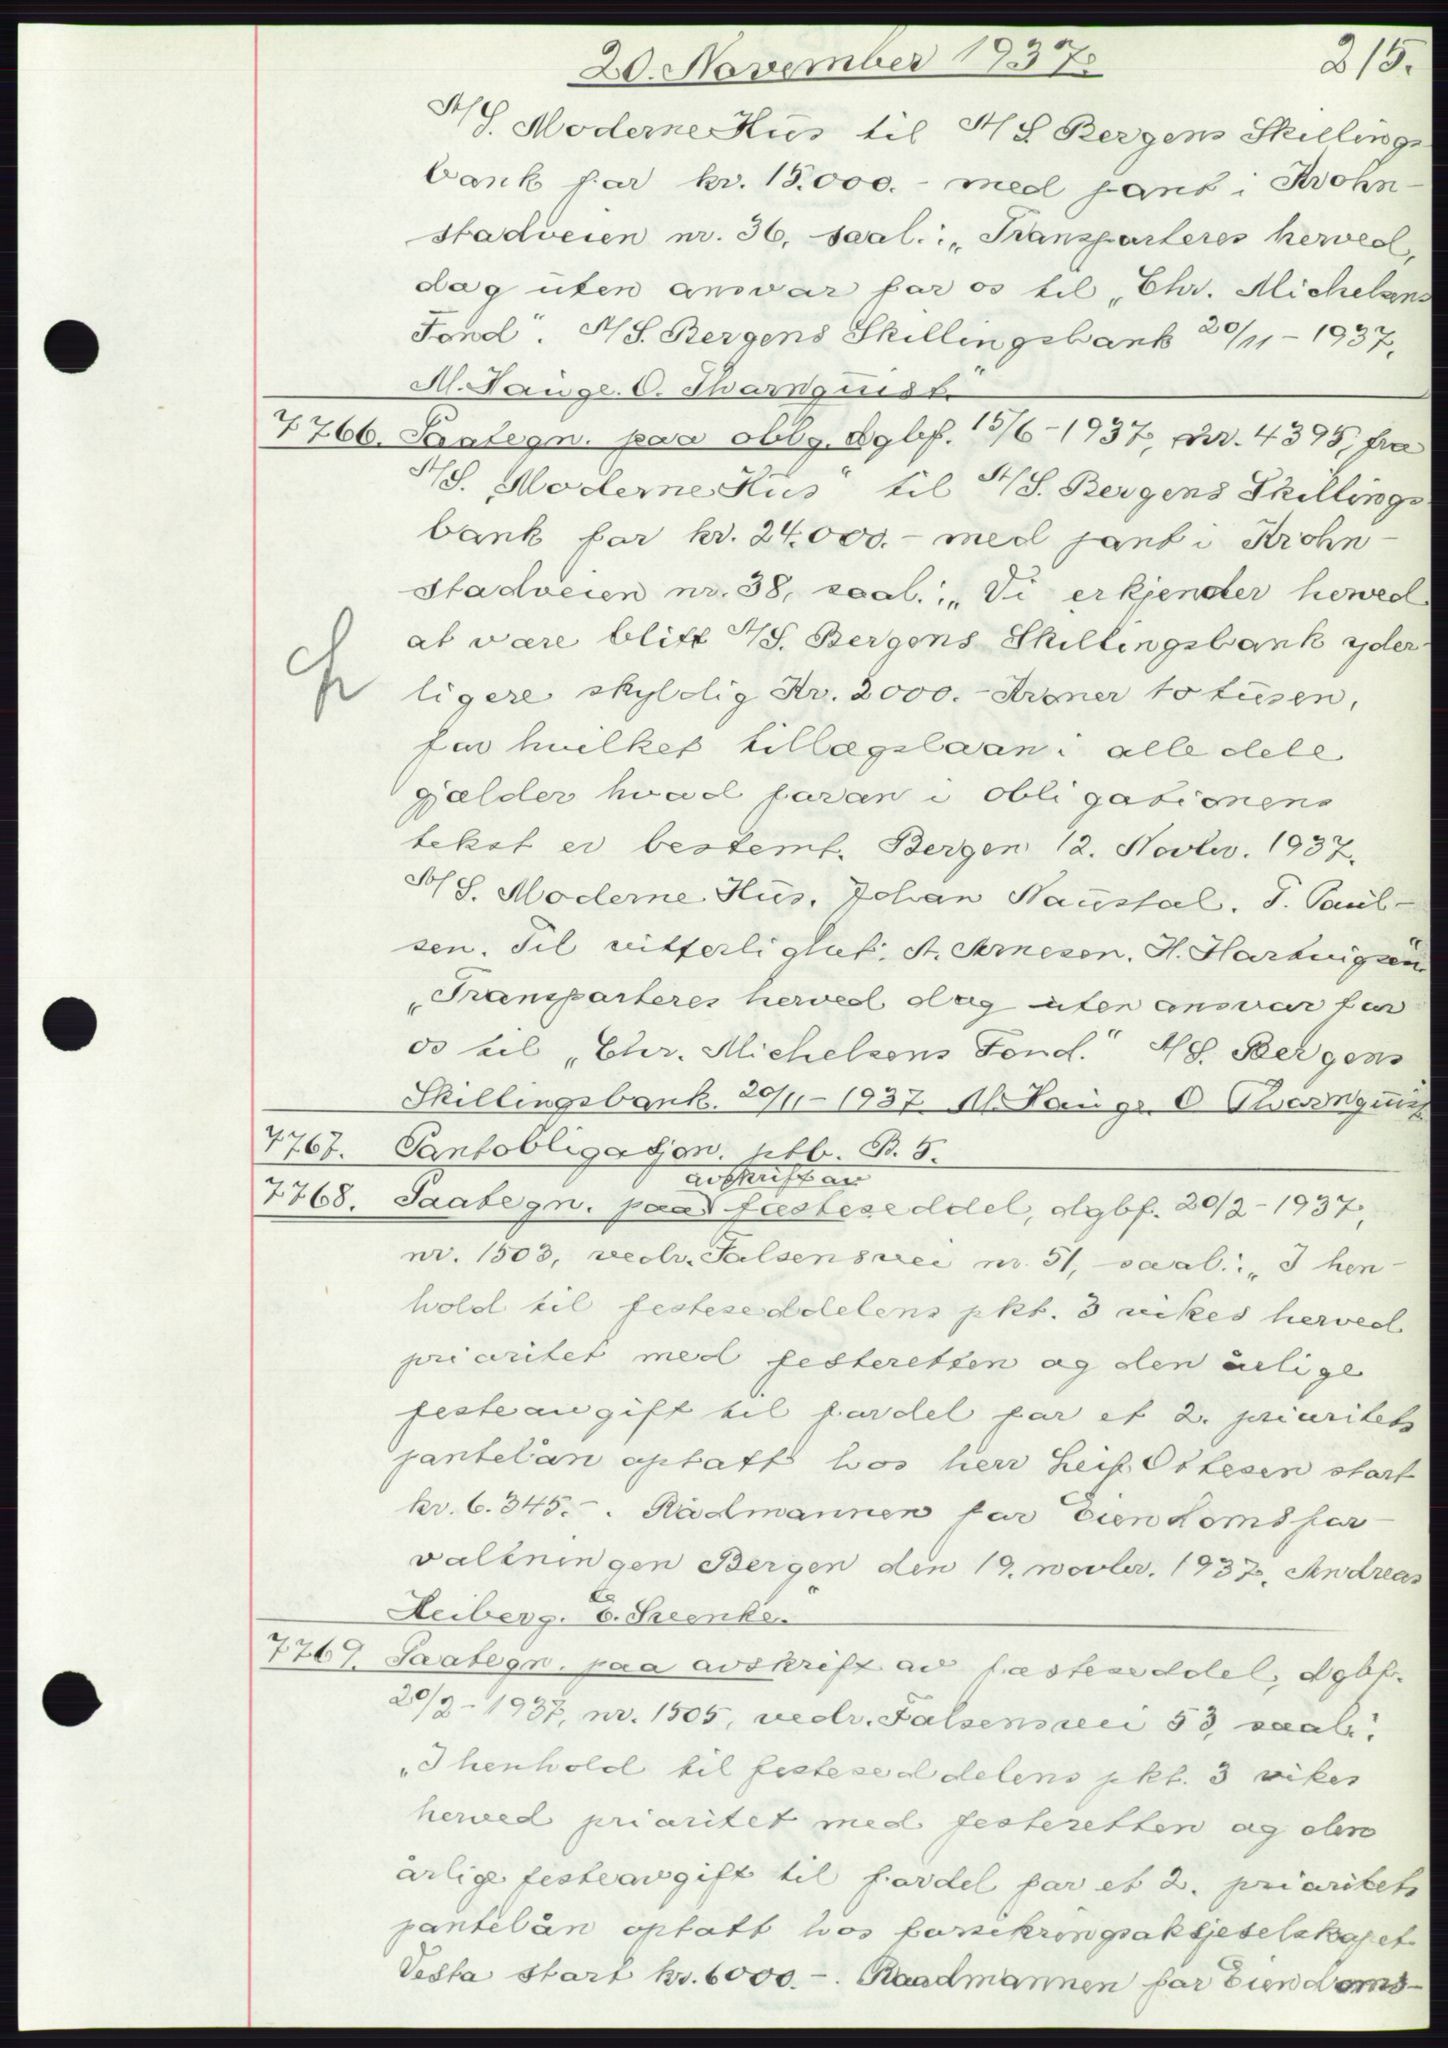 20. November 1937.
215.
A/S. Moderne Hus til A/S Bergens Skillings-
bank for kr. 15.000.- med pant i Krohn-
stadveien nr. 36, saal.: „Transporteres herved,
dag uten ansvar for os til „Chr. Michelsens
Fond". A/S. Bergens Skillingsbank 20/11-1937.
M. Hauge. O. Thornquist."
7766. Paategn. paa oblg. dgbf. 15/6-1937, nr. 4395, fra
A/S. „Moderne Hus" til A/S. Bergens Skillings-
bank for kr. 24.000.- med pant i Krohn-
stadveien nr. 38, saal.: „Vi erkjender herved
at være blitt A/S. Bergens Skillingsbank yder-
ligere skyldig Kr. 2000.- Kroner to tusen,
for hvilket tillægslaan i alle dele
gjælder hvad foran i obligationens
tekst er bestemt. Bergen 12. Novbr. 1937.
A/S. Moderne Hus. Johan Naustal. T. Paul-
sen. Til vitterlighet: A. Arnesen. H. Hartvigsen"
„Transporteres herved dag uten ansvar for
os til „Chr. Michelsens Fond." A/S. Bergens
Skillingsbank. 20/11-1937 M. Hauge. O Thornquist
7767. Pantobligasjon. ptb. B. 5.
avskrift av
7768. Paategn. paa fæsteseddel, dgbf. 20/2-1937,
nr. 1503, vedr. Falsensvei nr. 51, saal.: „I hen-
hold til festeseddelens pkt. 3 vikes herved
prioritet med festeretten og den årlige
festeavgift til fordel for et 2. prioritets
pantelån optatt hos herr Leif Ottesen stort
kr. 6.345.-. Rådmannen for Eiendomsfor-
valtningen Bergen den 19. novbr. 1937. Andreas
Heiberg. E. Sveenke."
7769. Paategn. paa avskrift av fæsteseddel, dgbf.
20/2-1937, nr. 1505, vedr. Falsensvei 53, saal.:
„I henhold til festeseddelens pkt. 3 vikes
herved prioritet med festeretten og den
årlige festeavgift til fordel for et 2. prioritets
pantelån optatt hos forsikringsaksjeselskapet
Vesta stort kr. 6000.-. Raadmannen for Eiendoms-